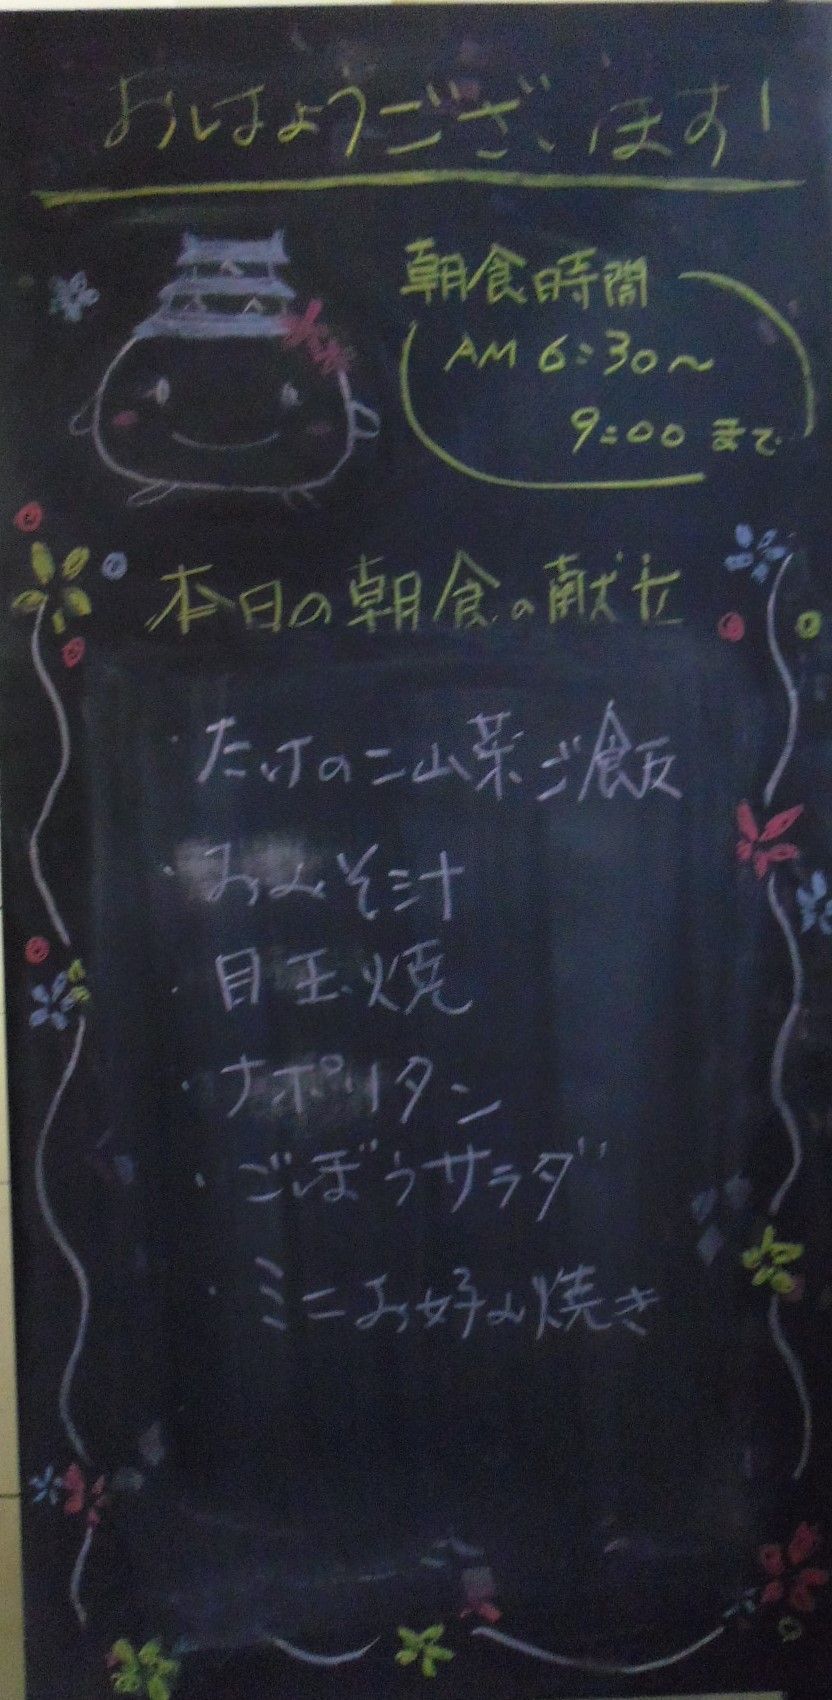 おはようございます!
朝食時間
AM 6:30〜
9:00 まで
本日の朝食の献立
・たけのこ山菜ご飯
・おみそ汁
・目玉焼
・ナポリタン
・ごぼうサラダ
・ミニお好み焼き